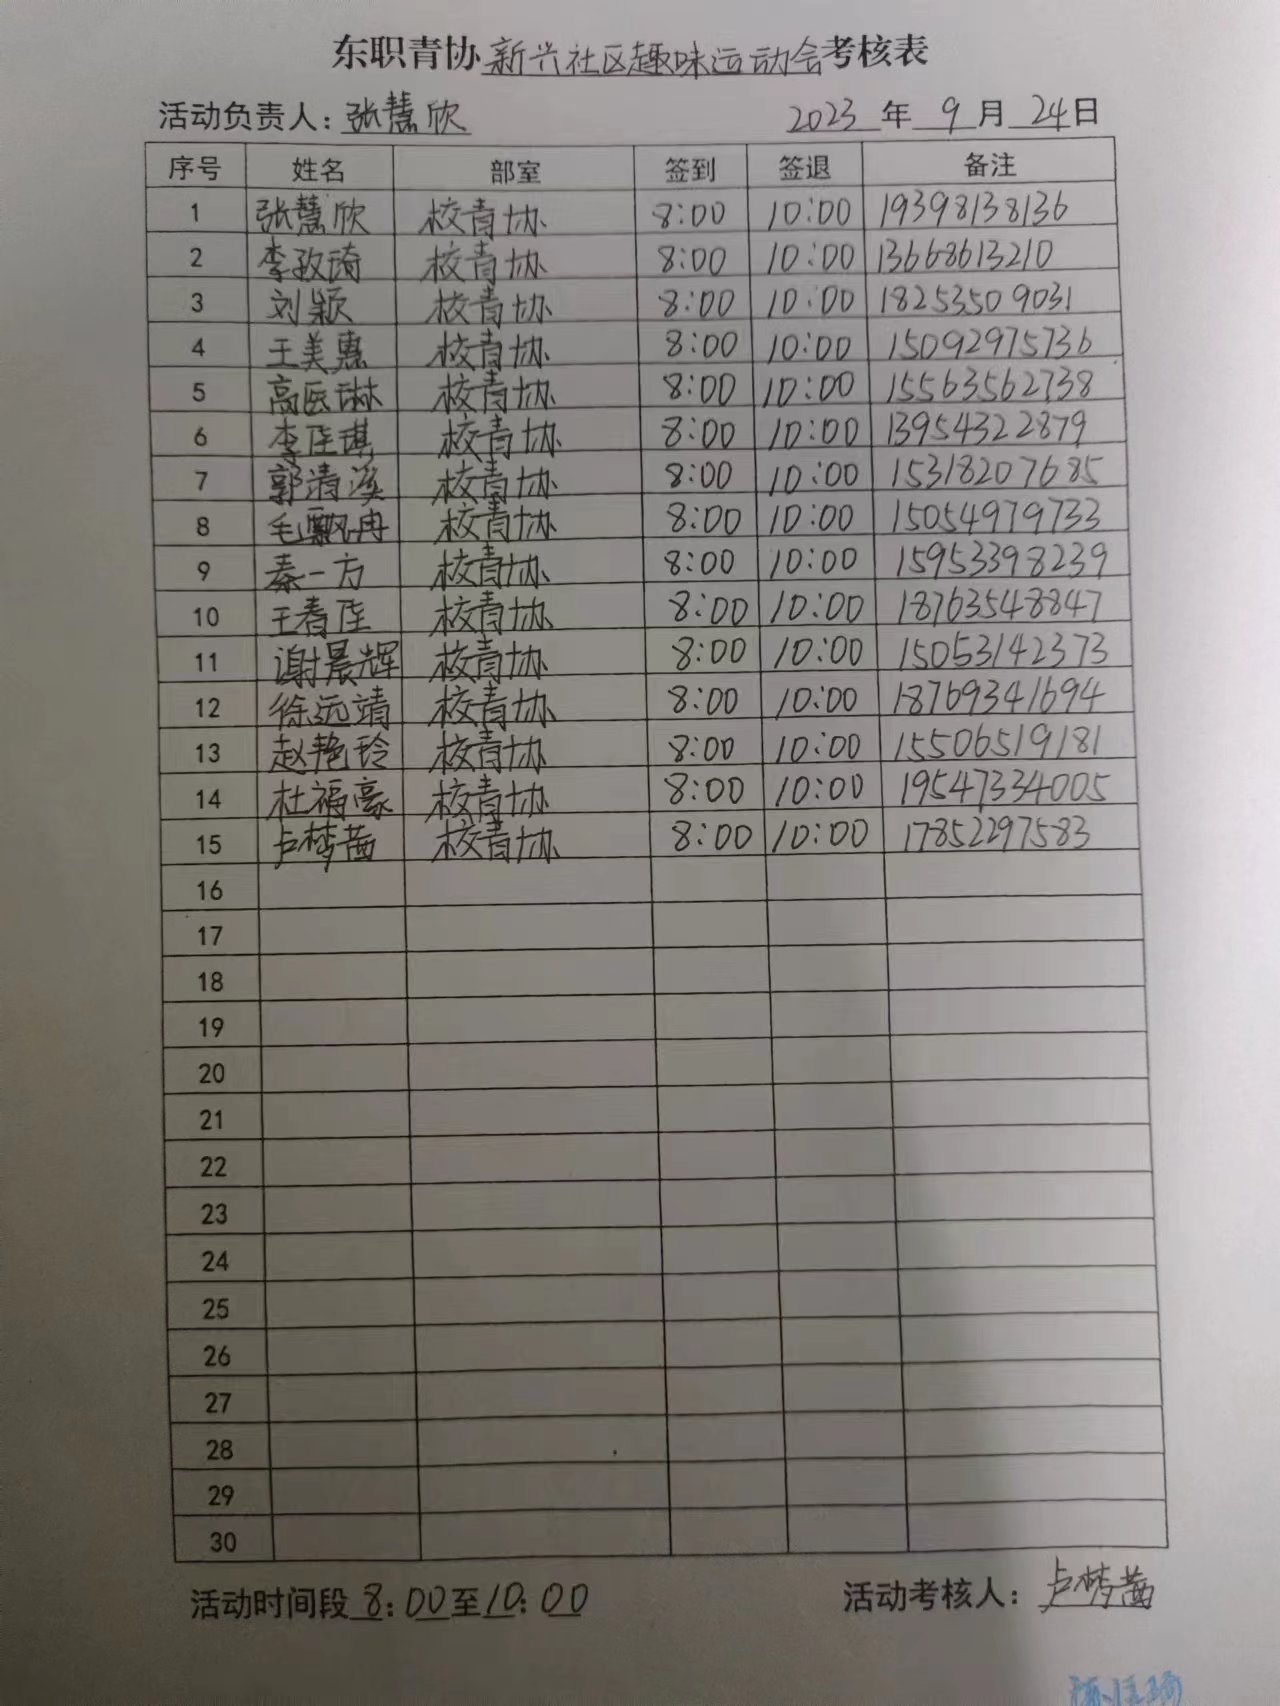 东职青协新兴社区趣味运动会考核表
活动负责人：张慧欣 2023 年 9 月 24 日
序号 姓名 部室 签到 签退 备注
1 张慧欣 校青协 8:00 10:00 19398138136
2 李政琦 校青协 8:00 10:00 13668613210
3 刘颖 校青协 8:00 10:00 18253509031
4 王美惠 校青协 8:00 10:00 15092975736
5 高医琳 校青协 8:00 10:00 15563562738
6 李佳琪 校青协 8:00 10:00 13954322879
7 郭清溪 校青协 8:00 10:00 15318207685
8 毛飘冉 校青协 8:00 10:00 15054979733
9 秦一方 校青协 8:00 10:00 15953398239
10 王春佳 校青协 8:00 10:00 18763548847
11 谢晨辉 校青协 8:00 10:00 15053142373
12 徐远靖 校青协 8:00 10:00 18769341694
13 赵艳玲 校青协 8:00 10:00 15506519181
14 杜福豪 校青协 8:00 10:00 19547334005
15 卢梦茜 校青协 8:00 10:00 17852297583
16
17
18
19
20
21
22
23
24
25
26
27
28
29
30
活动时间段 8:00至10:00 活动考核人：卢梦茜